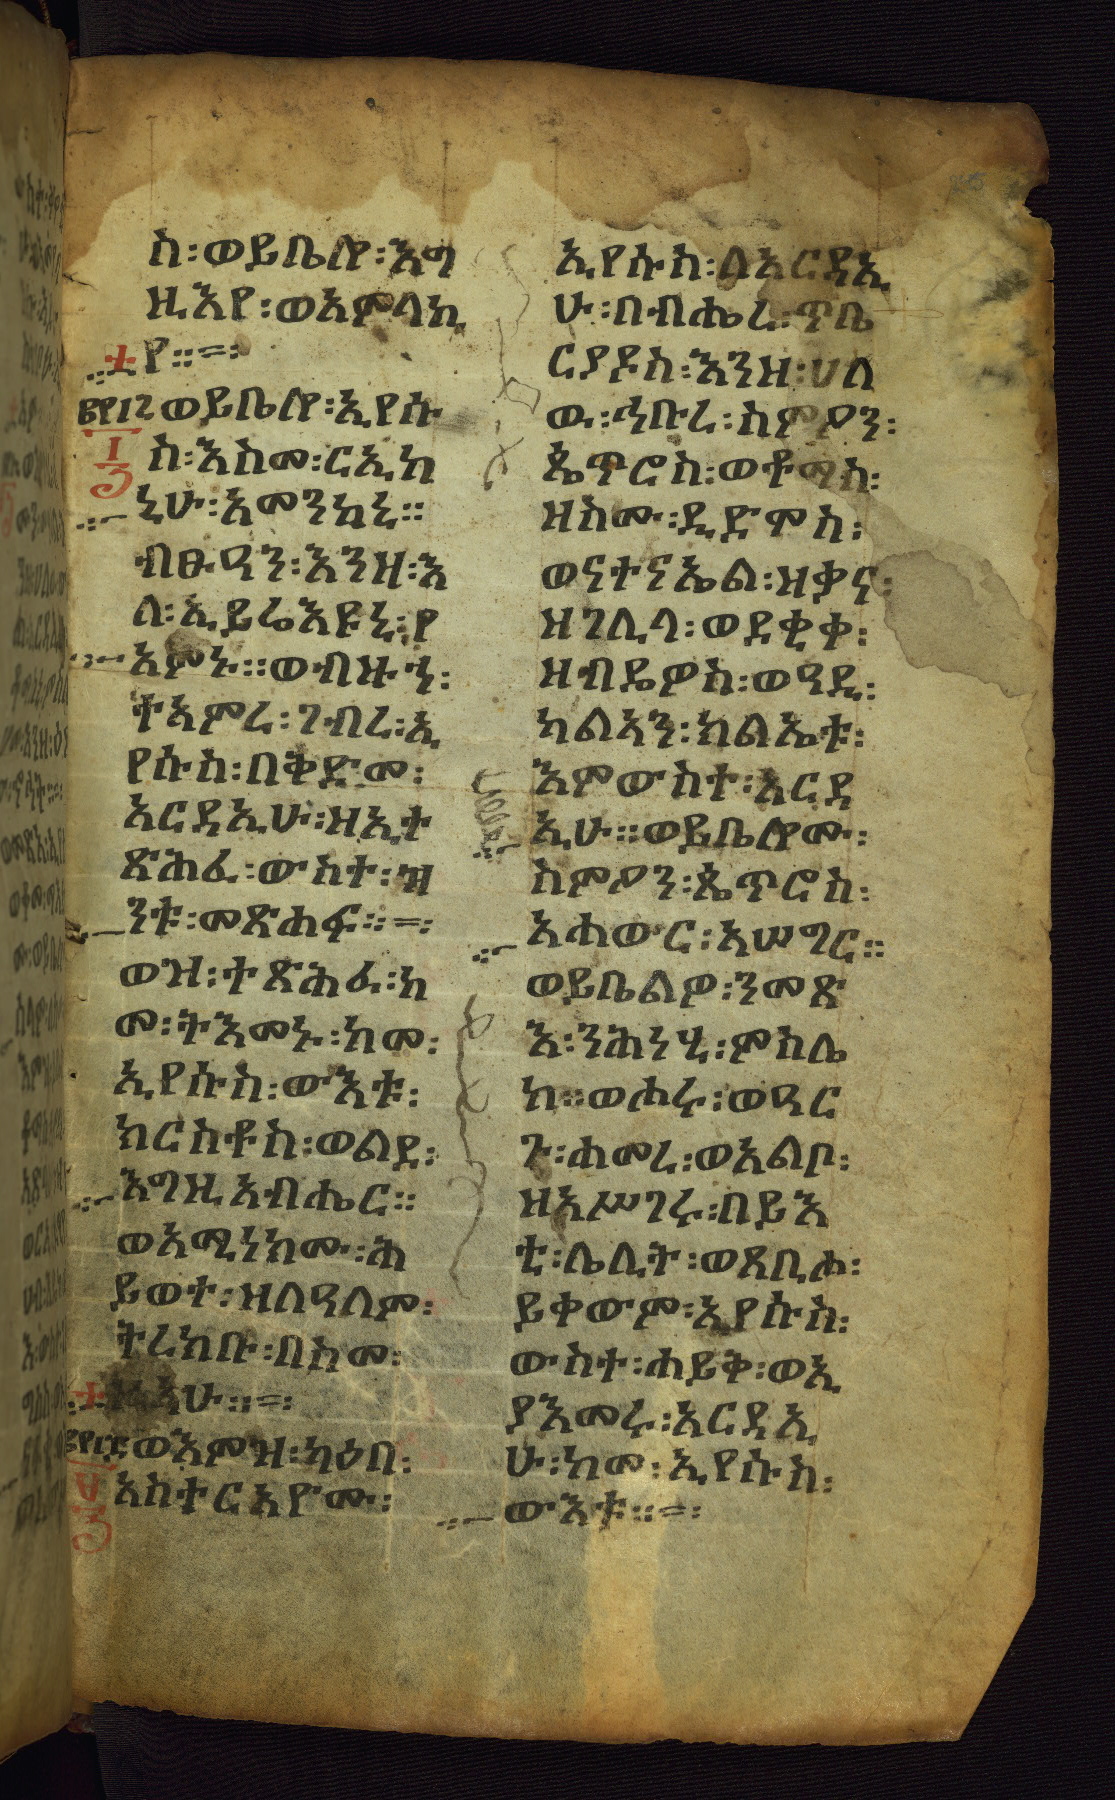 ስ፡ወይቤሎ፡እግ
ዚእየ፡ወአምላኪ
የ።=፡
ወይቤሎ፡ኢየሱ
ስ፡እስመ፡ርኢከ
ኒሁ፡አመንከኒ።
ብፁዓን፡እንዘ፡እ
ለ፡ኢይሬእዩኒ፡የ
አምኑ።ወብዙኅ፡
ተአምረ፡ገብረ፡ኢ
የሱስ፡በቅድመ፡
አርዳኢሁ፡ዘኢተ
ጽሕፈ፡ውስተ፡ዝ
ንቱ፡መጽሐፍ።=፡
ወዝ፡ተጽሕፈ፡ከ
መ፡ትእመኑ፡ከመ፡
ኢየሱስ፡ውእቱ፡
ክርስቶስ፡ወልደ፡
እግዚአብሔር።
ወአሚነክሙ፡ሕ
ይወተ፡ዘለዓለም፡
ትረክቡ፡በስመ፡
ዚአሁ።=፡
ወእምዝ፡ካዕበ፡
አስተርአዮሙ፡
ኢየሱስ፡ለአርዳኢ
ሁ፡በብሔረ፡ጥቤ
ርያዶስ፡እንዘ፡ሀለ
ዉ፡ኅቡረ፡ስምዖን፡
ጴጥሮስ፡ወቶማስ፡
ዘስሙ፡ዲድሞስ፡
ወናተናኤል፡ዘቃና፡
ዘገሊላ፡ወደቂቀ፡
ዘብዴዎስ፡ወዓዲ፡
ካልኣን፡ክልኤቱ፡
እምውስተ፡አርዳ
ኢሁ።ወይቤሎሙ፡
ስምዖን፡ጴጥሮስ፡
አሐውር፡አሠግር።
ወይቤልዎ፡ንመጽ
እ፡ንሕነሂ፡ምስሌ
ከ።ወሖሩ፡ወዓር
ጉ፡ሐመረ፡ወአልቦ፡
ዘአሥገሩ፡በይእ
ቲ፡ሌሊት፡ወጸቢሖ፡
ይቀውም፡ኢየሱስ፡
ውስተ፡ሐይቅ፡ወኢ
ያእመሩ፡አርዳኢ
ሁ፡ከመ፡ኢየሱስ፡
ውእቱ።=፡